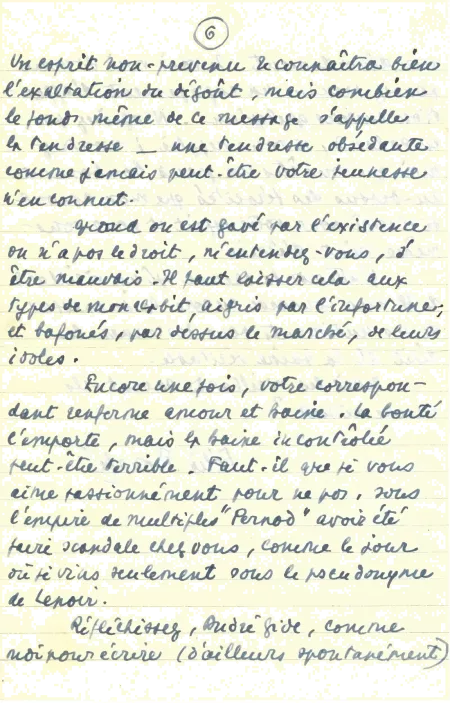 6
Un esprit non-prevenu reconnaîtra bien
l'exaltation du dégoût, mais combien
le fond même de ce message s'appelle
la tendresse _ une tendresse obsédante
comme jamais peut-être votre jeunesse
n'en connut.
Quand on est gavé par l'existence
on n'a pas le droit, m'entendez-vous, d'
être mauvais. Il faut laisser cela aux
types de mon acabit, aigris par l'infortune,
et bafoués, par dessus le marché, de leurs
idoles.
Encore une fois, votre correspon-
dant renferme amour et haine. La bonté
l'emporte, mais la haine incontrôlée
peut-être terrible. Faut-il que je vous
aime passionnément pour ne pas, sous
l'empire de multiples "Pernod" avoir été
faire scandale chez vous, comme le jour
où je vins seulement sous le pseudonyme
de Lenoir.
Réfléchissez, André Gide, comme
moi pour écrire (d'ailleurs spontanément)